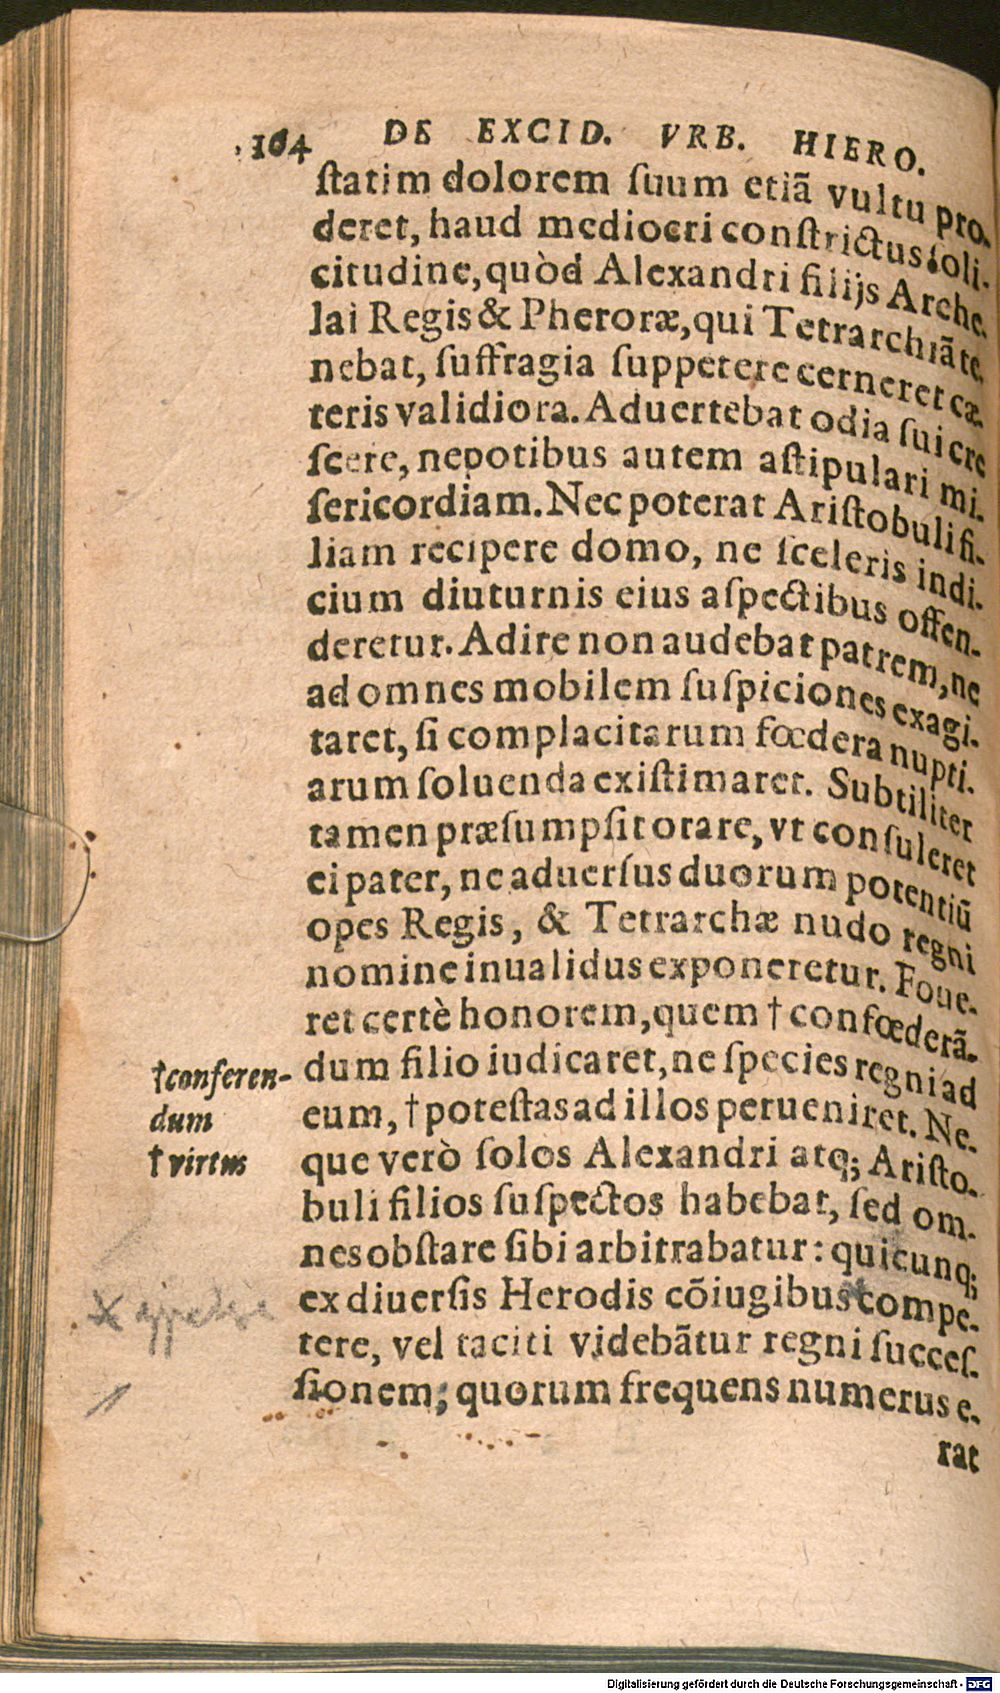 164 DE EXCID. VRB. HIERO.
ſtatim dolorem ſuum etiā vultu pro-
deret, haud mediocri conſtrictus ſoli-
citudine, quòd Alexandri filijs Arche-
lai Regis & Pheroræ, qui Tetrarchiā te-
nebat, ſuffragia ſuppetere cerneret cæ-
teris validiora. Aduertebat odia ſui cre
ſcere, nepotibus autem aſtipulari mi-
ſericordiam. Nec poterat Ariſtobuli fi-
liam recipere domo, ne ſceleris indi-
cium diuturnis eius aſpectibus offen-
deretur. Adire non audebat patrem, ne
ad omnes mobilem ſuſpiciones exagi-
taret, ſi complacitarum fœdera nupti-
arum ſoluenda exiſtimaret. Subtiliter
tamen præſumpſit orare, vt conſuleret
ei pater, ne aduerſus duorum potentiū
opes Regis, & Tetrarchæ nudo regni
nomine inualidus exponeretur. Foue-
ret certè honorem, quem † confœderā-
dum filio iudicaret, ne ſpecies regni ad
eum, † poteſtas ad illos perueniret. Ne-
que verò ſolos Alexandri atq; Ariſto-
buli filios ſuſpectos habebat, ſed om-
nes obſtare ſibi arbitrabatur: quicunq;
ex diuerſis Herodis cōiugibus compe-
tere, vel taciti videbātur regni ſucceſ-
ſionem; quorum frequens numerus e-
rat
†conferen-
dum
† virtus
Digitalisierung gefördert durch die Deutsche Forschungsgemeinschaft - DFG